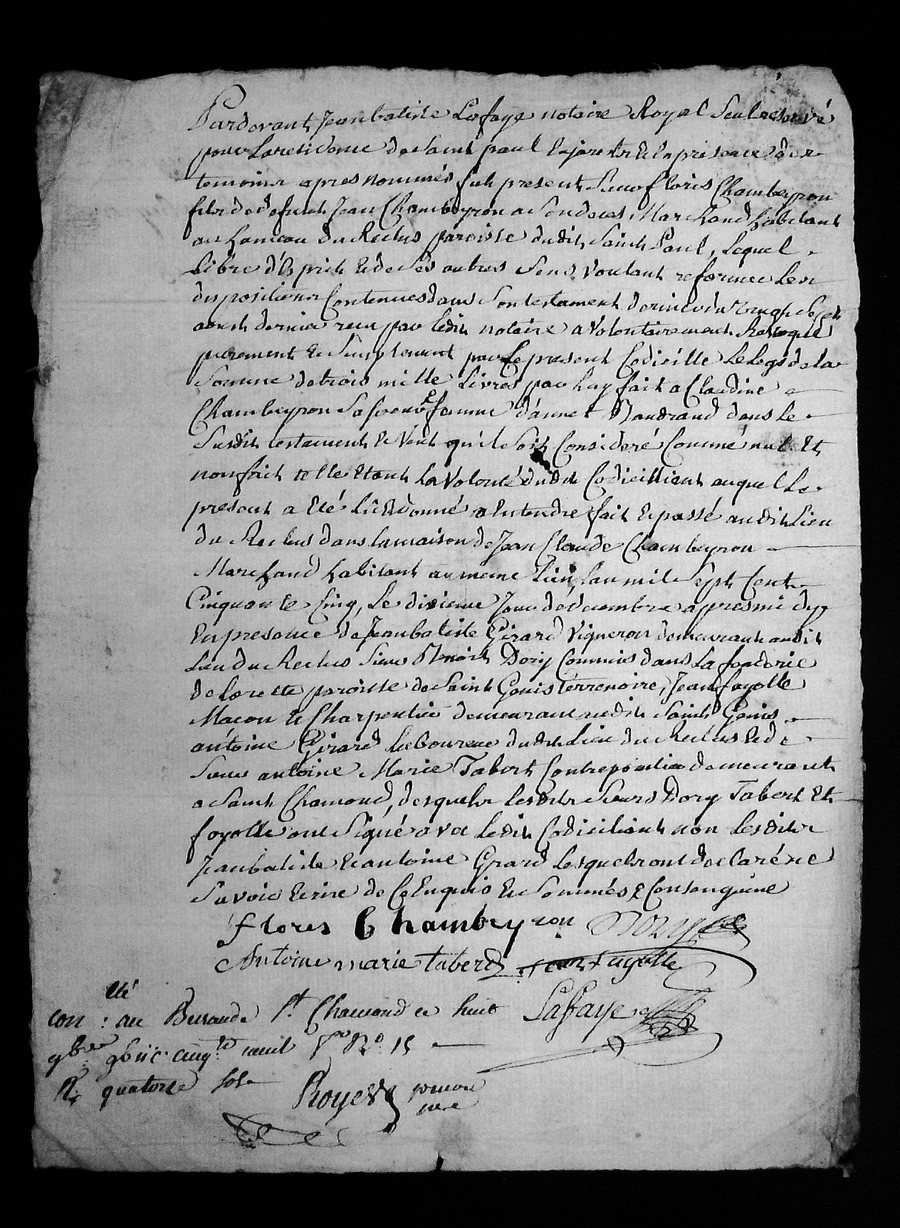 Pardevant Jeanbatiste Lafaye notaire Royal Seul reservé
pour La residence de Saint paul En jarest Et En presence des
temoins apres nommés fut present Sieur Floris Chambeyron
fils de defunt Jean Chambeyron a Son deces Marchand habitant
au hameau du Reclus paroisse dudit Saint Paul, Lequel
Libre d'Esprit Et de Ses autres Sens Voulant reformer Les
dispositions Contenues dans Son testament du vingt
aoust dernier recu par ledit notaire a Volontairement Revoqué
purement Et Simplement par Le present Codicille Le Legs de La
Somme de trois mille Livres par luy fait a Claudine
Chambeyron Sa soeur femme d'annet Baudrand dans Le
Susdit testament Et Veut qu'il Soit Consideré Comme nul Et
non fait telle Etant La Volonté dudit Codicillient auquel Le
present a Eté Lû Et donné a Entendre fait Et passé audit Lieu
du Reclus dans la maison de Jean Claude Chambeyron
Marchand habitant au meme Lieu Lan mil Sept Cent
Cinquante Cinq, Le dixieme Jour de decembre apres midy
En presence de Jeanbatiste Girard Vigneron demeurant audit
Lieu du Reclus Sieur Benoit Dory Commis dans La fonderie
de Lorette paroisse de Saint Genis terrenoire, Jean fayolle
Macon Et Charpentier demeurant audit Saint Genis
antoine Girard Laboureur dudit Lieu du Reclus Et de
Sieur antoine Marie Tabert Contrepointier demeurant
a Saint Chamond, desquels Lesdits Sieurs Dory Tabert Et
fayolle ont Signé avec ledit Codicilient non Lesdits
Jeanbatiste Et antoine Girard Lesquels ont declaré ne
Savoir Ecrire de Ce Enquis Et Sommés
Flores Chambeyron Dory
Antoine marie tabert Jean Fayolle
Lafaye
con : au Bureau de St Chamond ce huit
Rs quatorse sols
Royer